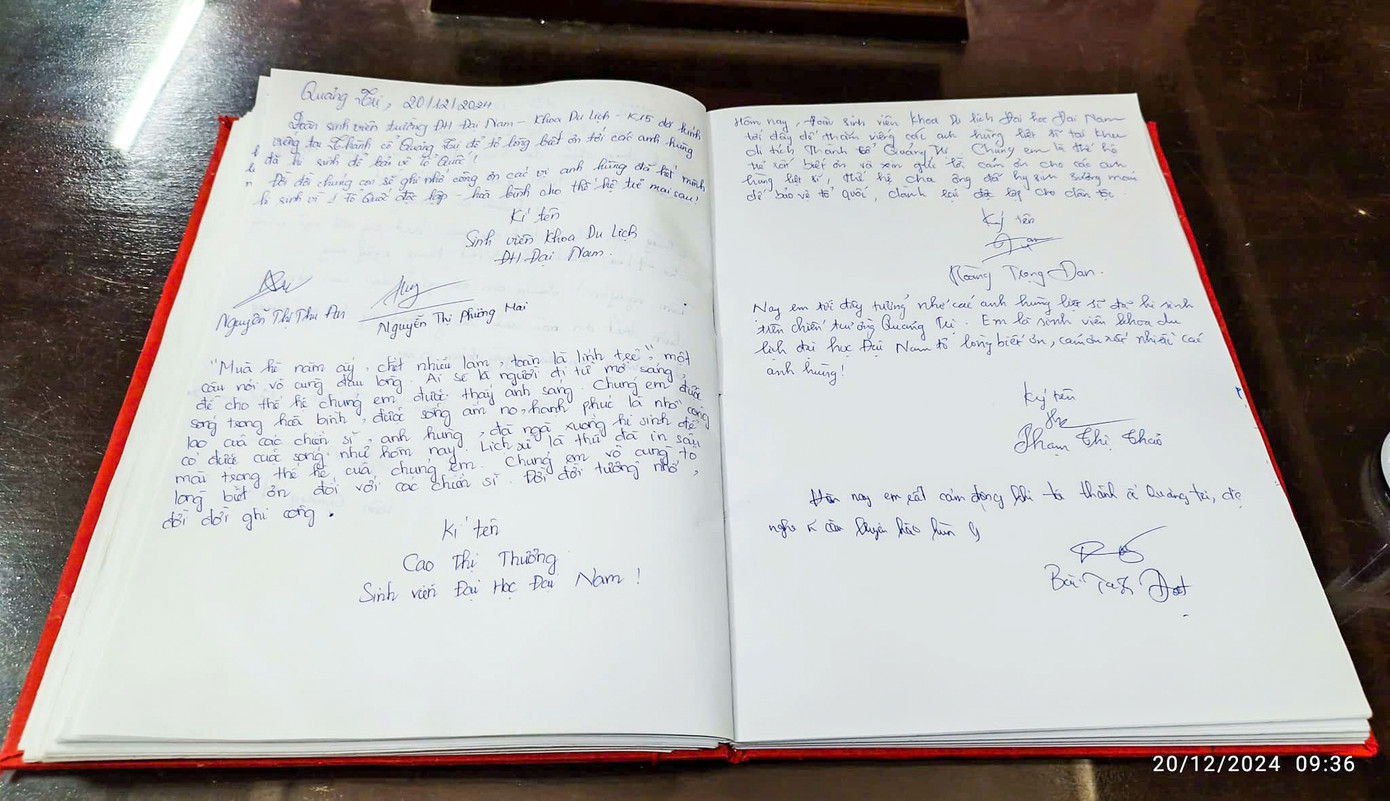 Quảng Trị, 20/12/2024
Đoàn sinh viên trường ĐH Đại Nam - Khoa Du Lịch - K15 đã kính
viếng tại Thành cổ Quảng Trị để tỏ lòng biết ơn tới các anh hùng
đã hi sinh để bảo vệ Tổ Quốc!
Đời đời chúng con sẽ ghi nhớ công ơn các vị anh hùng đã hết mình
hi sinh vì 1 tổ quốc độc lập - hoà bình cho thế hệ trẻ mai sau!
Kí tên
Sinh viên Khoa Du Lịch
ĐH Đại Nam.
Nguyễn Thị Thu An
Nguyễn Thị Phương Mai
"Mùa hè năm ấy, chết nhiều lắm, toàn là lính trẻ", một
câu nói vô cùng đau lòng. Ai sẽ là người đi từ mờ sáng,
để cho thế hệ chúng em được thấy ánh sáng. Chúng em được
sống trong hoà bình, được sống ấm no, hạnh phúc là nhờ công
lao của các chiến sĩ, anh hùng, đã ngã xuống hi sinh để
có được cuộc sống như hôm nay. Lịch sử là thứ đã in sâu
mãi trong thế hệ của chúng em. Chúng em vô cùng tỏ
lòng biết ơn đối với các chiến sĩ. Đời đời tưởng nhớ,
đời đời ghi công.
Kí tên
Cao Thị Thưởng
Sinh viên Đại Học Đại Nam!
Hôm nay, đoàn sinh viên khoa Du lịch Đại học Đại Nam
tới đây để thăm viếng các anh hùng liệt sĩ tại khu
di tích Thành cổ Quảng Trị. Chúng em là thế hệ
trẻ rất biết ơn và xin gửi lời cảm ơn cho các anh
hùng liệt sĩ, thế hệ cha ông đã hy sinh xương máu
để bảo vệ tổ quốc, dành lại độc lập cho dân tộc
Ký tên
Hoàng Trọng Đan.
Nay em tới đây tưởng nhớ các anh hùng liệt sĩ đã hi sinh
trên chiến trường Quảng Trị. Em là sinh viên khoa du
lịch đại học Đại Nam tỏ lòng biết ơn, cảm ơn rất nhiều các
anh hùng!
Ký tên
Phạm Thị Thảo
Hôm nay em rất cảm động khi tới thành cổ Quảng trị, để
nghe
Bùi Đạt
20/12/2024 09:36